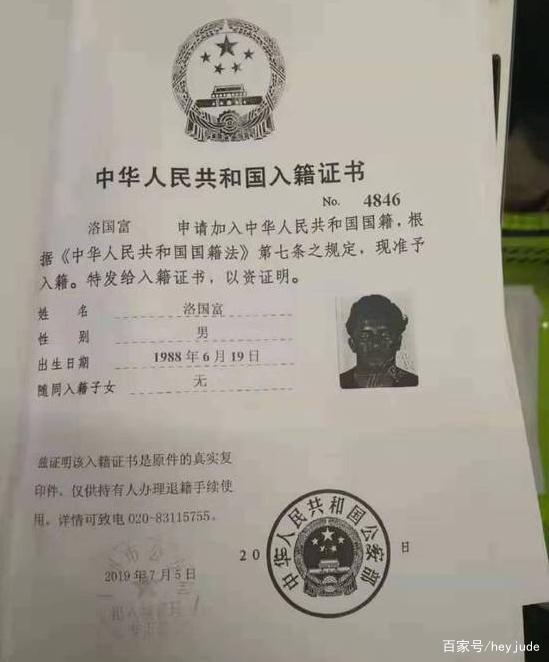 中华人民共和国入籍证书
No. 4846
洛国富 申请加入中华人民共和国国籍，根
据《中华人民共和国国籍法》第七条之规定，现准予
入籍。特发给入籍证书，以资证明。
姓 名 洛国富
性 别 男
出生日期 1988年6月19日
随同入籍子女 无
兹证明该入籍证书是原件的真实复
印件，仅供持有人办理退籍手续使
用。详情可致电 020-83115755。
2019年7月5日
20 日
中华人民共和国公安部
百家号/heyjude